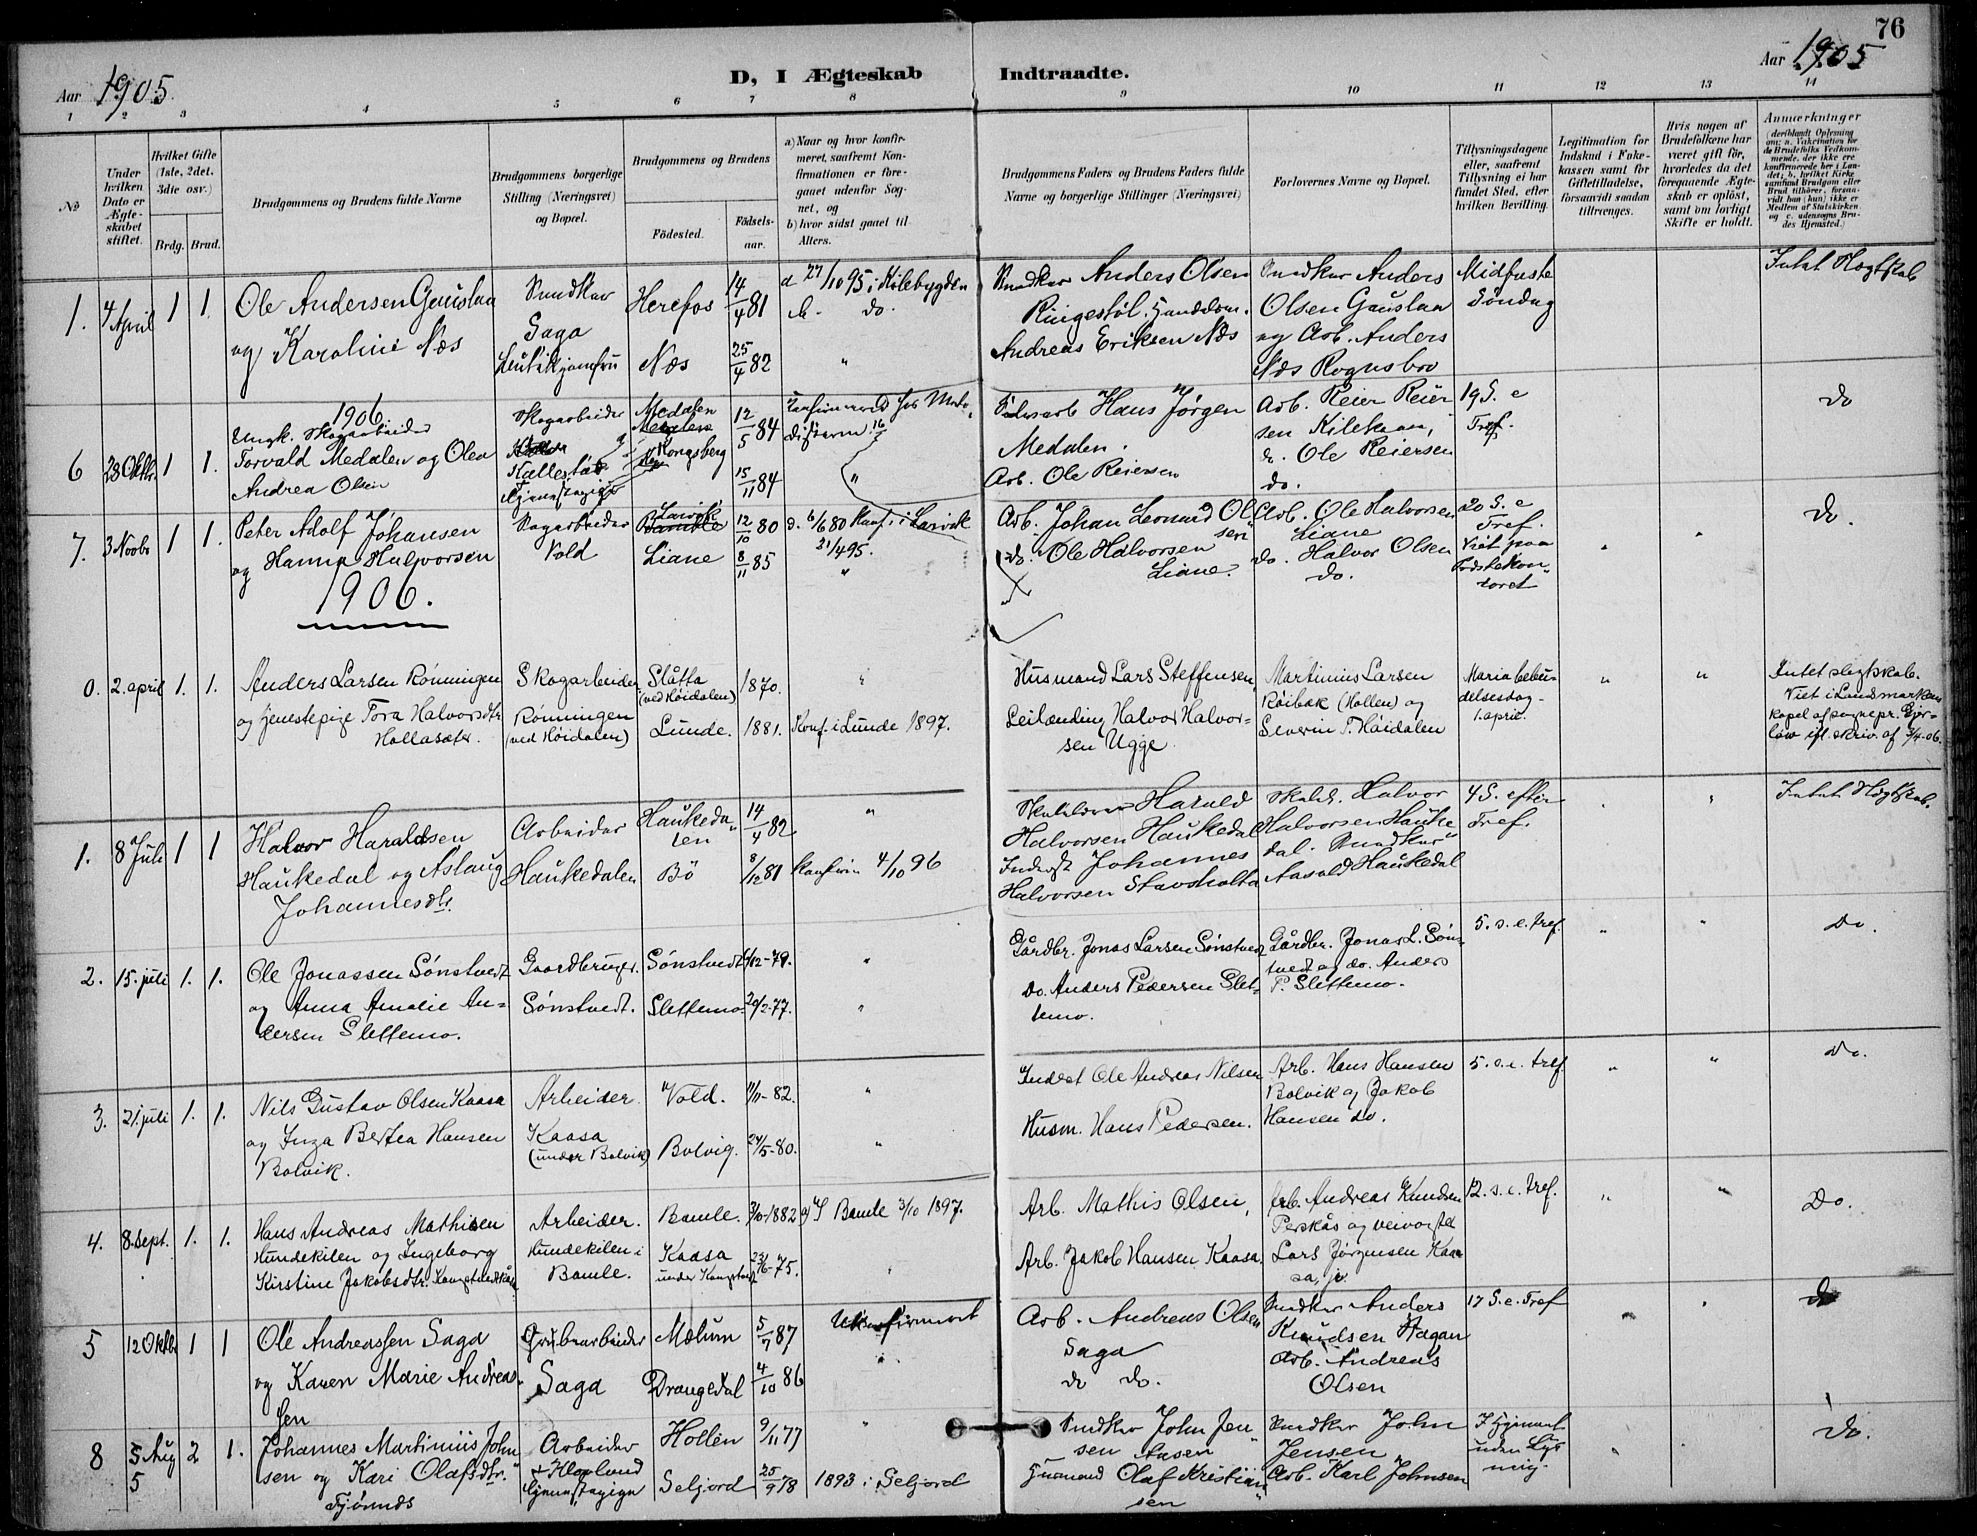 76
Aar 1905.
D, I Ægteskab Indtraadte.
Aar 1905
1 2 3 4 5 6 7 8 9 10 11 12 13 14
No
Under hvilken Dato er Ægteskabet stiftet.
Hvilket Gifte (1ste, 2det, 3die osv.)
Brdg. Brud.
Brudgommens og Brudens fulde Navne
Brudgommens borgerlige Stilling (Næringsvei) og Bopæl.
Brudgommens og Brudens
Fødested.
Fødselsaar.
a) Naar og hvor konfirmeret, saafremt Konfirmationen er foregaaet udenfor Sognet, og
b) hvor sidst gaaet til Alters.
Brudgommens Faders og Brudens Faders fulde Navne og borgerlige Stillinger (Næringsvei)
Forlovernes Navne og Bopæl.
Tillysningsdagene eller, saafremt Tillysning ei har fundet Sted, efter hvilken Bevilling.
Legitimation for Indskud i Enkekassen samt for Giftetilladelse, forsaavidt saadan tiltrænges.
Hvis nogen af Brudefolkene har været gift før, hvorledes da det foregaaende Ægteskab er opløst, samt om lovligt Skifte er holdt.
Anmerkninger
(deriblandt Oplysning om: a. Vakcination for de Brudefolks Vedkommende, der ikke ere konfirmerede her i Landet; b. hvilket Kirkesamfund Brudgom eller Brud tilhører, forsaavidt han (hun) ikke er Medlem af Statskirken og c. udensogns Brudes Hjemsted.)
1. 4 April 1 1. Ole Andersen Gauslaa
og Karoline Næs
Saga
Herefos 14/4 81 a 27/10 95 i Kilebygden
b. do.
Næs 25/4 82 "
Anders Olsen
Ringestøl.
Andreas Eriksen Næs
Anders
Olsen Gauslaa
og Arb. Anders
Næs Rognsbo
Midfaste
Søndag
Intet Slegtskab
1906
6 28 Oktbr. 1 1. Ungk. Skogarbeider
Torvald Medalen og Olea
Andrea Olsen
Skogarbeider
Medalen 12/5 84
Kongsberg
15/11 84 "
Hans Jørgen
Medalen.
Arb. Ole Reiersen
Arb. Reier Reiersen
Kilekaan,
do. Ole Reiersen
do.
19 S. e
Tref.
do
7. 3 Novbr 1 1. Peter Adolf Johansen
og Hanna Halvorsen
Vold
Larvik
Bamble 12/10 80 Konf. i Larvik
21/4 95.
Liane 8/11 85 "
Arb. Johan Leonard Olsen
do. Ole Halvorsen
Liane.
Arb. Ole Halvorsen
Liane
do. Halvor Olsen
do.
20 S. e
Tref.
Viet paa
toret
do.
1906.
0. 2. april 1. 1. Anders Larsen Rönningen
og tjenestepige Tora Halvorsdtr.
Hollasæter.
Skogarbeider
Rönningen
(ved Höidalen)
Slåtta
(ved Höidalen) 1870. "
Lunde. 1881. Konf. i Lunde 1897.
Husmand Lars Steffensen,
Leilænding Halvor Halvorsen
Ugge.
Martinius Larsen
Röibæk (Hollen) og
Severin T. Höidalen
Maria bebudelsesdag
1. april.
Intet slegtskab.
Viet i Landsmarkens
kapel af sognepr. Gjerløw
ifl. skriv. af 3/4-06.
1. 8 Juli 1 1 Halvor Haraldsen
Haukedal og Aslaug
Johannesdtr.
Arbeider
Haukedalen
Haukedalen 14/4 82 "
Bö 8/12 81 Konfirm 4/10 96
Harald
Halvorsen Haukedal
Inderst Johannes
Halvorsen Stavsholta
Halvor
Halvorsen Haukedal.
Aasold Haukedal
4 S. efter
Tref.
Intet Slegtskab.
2. 15. juli 1. 1. Ole Jonassen Sönstvedt
og Anna Amalie Andersen
Slettemo.
Gaardbruger.
Sönstvedt.
Sönstvedt 12-79. "
Slettemo 20/2-77. "
Gårdbr. Jonas Larsen Sönstvedt
Do. Anders Pedersen Slettemo.
Gårdbr. Jonas L. Sönstvedt
og do. Anders
P. Slettemo.
5. s. e. tref.
do.
3. 21. juli 1. 1. Nils Gustav Olsen Kaasa
og Inga Bertea Hansen
Bolvik.
Arbeider.
Kaasa
(under Bolvik)
Vold. 11/11-82. "
Bolvig. 24/5-80. "
Inderst Ole Andreas Nilsen
Husm. Hans Pedersen.
Arb. Hans Hansen
Bolvik og Jakob
Hansen do.
5. s. e. tref
do.
4. 8. sept. 1. 1. Hans Andreas Mathisen
Hundekilen og Ingeborg
Kirstine Jakobsdtr.
Arbeider.
Hundekilen i
Bamle.
Bamle. 1882 a) I Bamle 3/10 1897.
Kaasa
75.
Arb. Mathis Olsen,
Arb. Jakob Hansen Kaasa.
Arb. Andreas Knudsen
Perskås og
Lars Jørgensen Kaasa,
12. s. e. tref.
Do.
5 12 Oktbr 1 1 Ole Andreassen Saga
og Karen Marie Andreassen
Grubearbeider
Saga
Mælum 5/7 87 Ukonfirmert
Drangedal 4/10 86
Arb. Andreas Olsen
Saga
do do.
Anders
Knudsen Hagan
Arb. Andreas
Olsen
17 S. e. Tref
do
8 5 Aug 2 1. Johannes Martinius Johnsen
og Kari Olafsdtr.
5
Arbeider
Hollen 9/11 77 "
Seljord 25/9 78 1893 i Seljord
John Jensen
Aasen
Husmand Olaf Kristiansen
John
Jensen
Arb. Karl Johnsen
do.